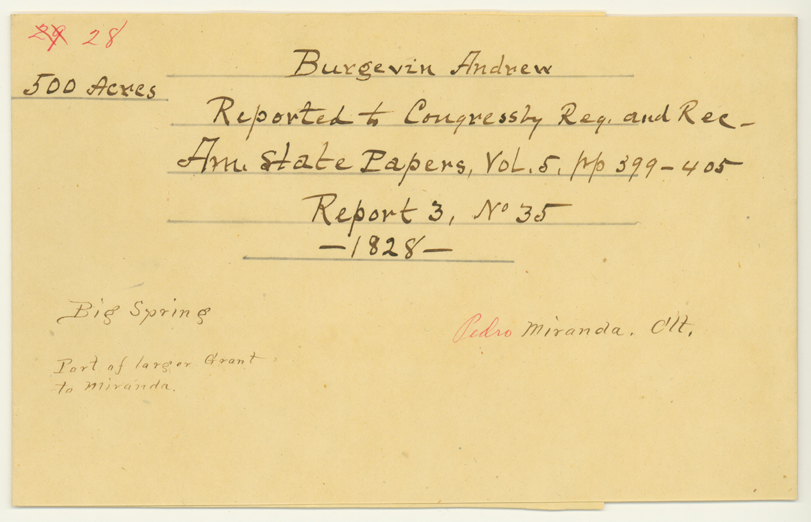 29 28
Burgevin Andrew
500 Acres
Reported to Congress by Reg. and Rec-
Am. State Papers, Vol. 5. pp 399-405
Report 3, No 35
-1828-
Big Spring
Pedro Miranda. Clt.
Part of larger Grant
to Miranda.